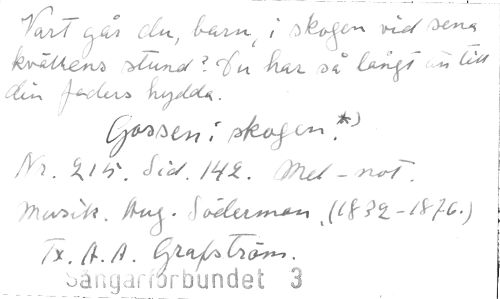 Vart går du, barn, i skogen vid sena
kvällens stund? Du har så långt än till
din faders hydda.
Gossen i skogen.*)
Nr. 215. Sid. 142. Mel-not.
Musik. Aug. Söderman. (1832-1876.)
Tx. A. A. Grafström.
Sångarförbundet 3